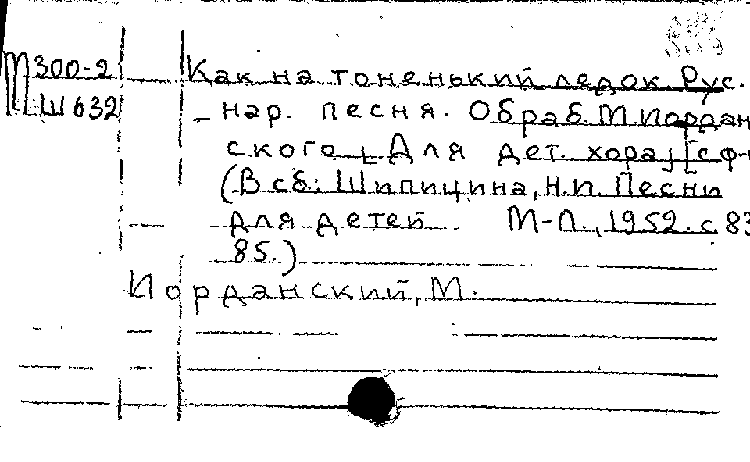 М300-2
Ш632
Как на тоненький ледок Рус.
нар. песня. Обраб. М Иордан
ского [Для дет. хора] [с ф-
(В сб: Шипицина, Н.П. Песни
для детей. М-Л., 1952. с 83
85.)
Иорданский, М.